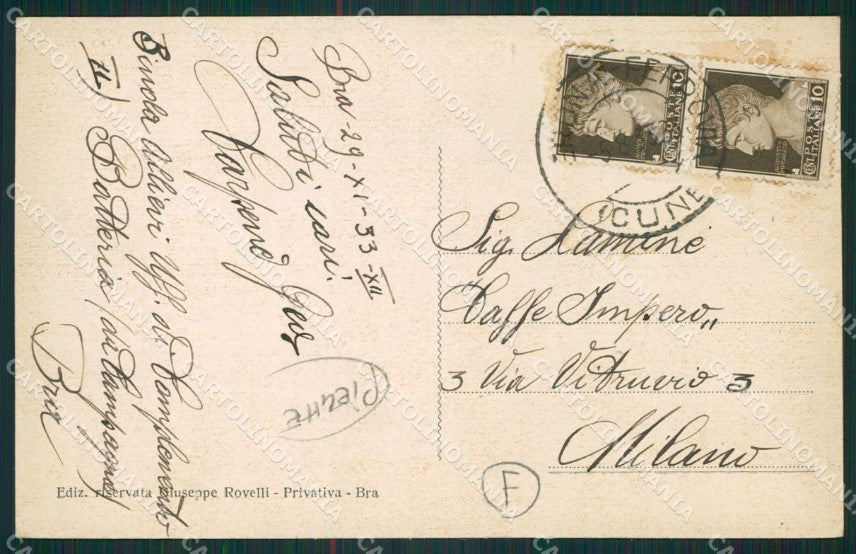 Bra 29-XI-33-XII
Saluti cari.
Scuola Allievi Uff. di Complemento
II) Batteria (di Campagna)
Bra
PIEGHE
Ediz. riservata Giuseppe Rovelli - Privativa - Bra
POSTE ITALIANE 10
POSTE ITALIANE 10
CUNEO
Sig. Laminé
Caffe Impero „
3 Via Vitruvio 3
Milano
F
CARTOLINOMANIA